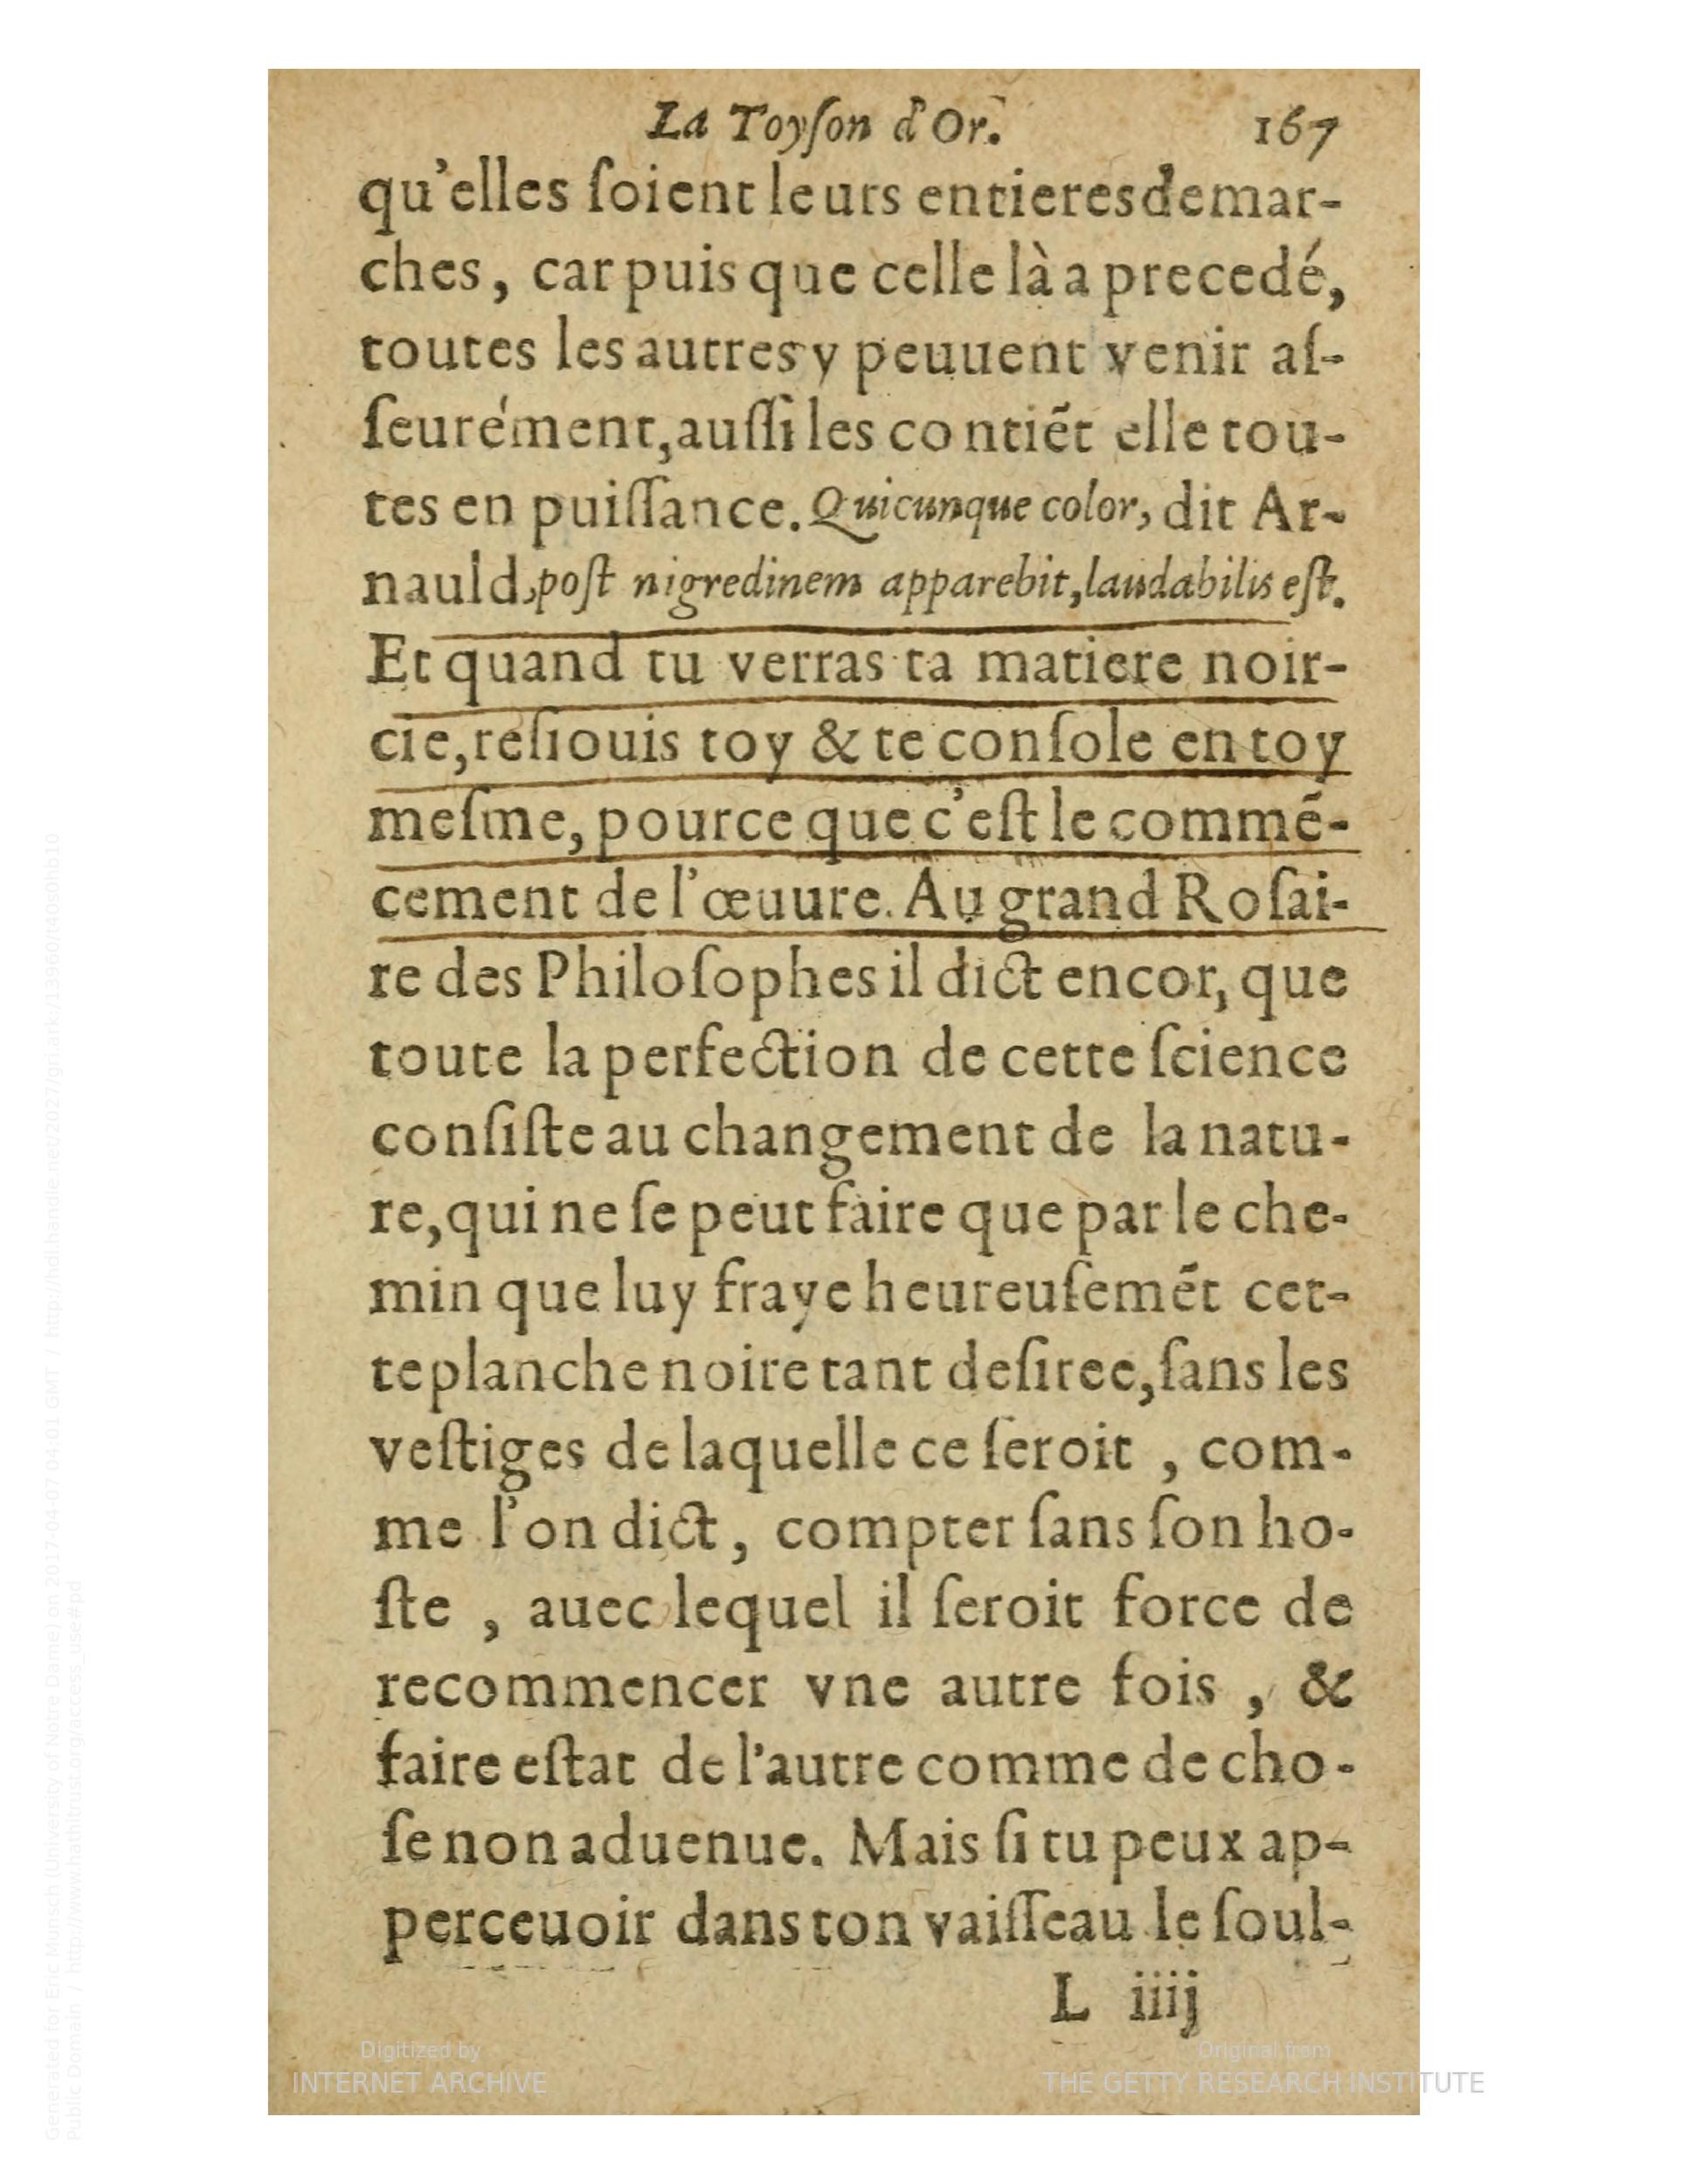 La Toyſon d'Or. 167
qu'elles ſoient leurs entieres demar-
ches, car puis que celle là a precedé,
toutes les autres y peuuent venir aſ-
ſeurément, auſſi les contiẽt elle tou-
tes en puiſſance. Quicunque color, dit Ar-
nauld, poſt nigredinem apparebit, laudabilis eſt.
Et quand tu verras ta matiere noir-
cie, reſiouis toy & te conſole en toy
meſme, pource que c'eſt le commẽ-
cement de l'œuure. Au grand Roſai-
re des Philoſophes il dict encor, que
toute la perfection de cette ſcience
conſiſte au changement de la natu-
re, qui ne ſe peut faire que par le che-
min que luy fraye heureuſemẽt cet-
te planche noire tant deſiree, ſans les
veſtiges de laquelle ce ſeroit, com-
me l'on dict, compter ſans ſon ho-
ſte, auec lequel il ſeroit force de
recommencer vne autre fois, &
faire eſtat de l'autre comme de cho-
ſe non aduenue. Mais ſi tu peux ap-
perceuoir dans ton vaiſſeau le ſoul-
L iiij
Digitized by
INTERNET ARCHIVE
Original from
THE GETTY RESEARCH INSTITUTE
Generated for Eric Munsch (University of Notre Dame) on 2017-04-07 04:01 GMT / http://hdl.handle.net/2027/gri.ark:/13960/t40s0hb10
Public Domain / http://www.hathitrust.org/access_use#pd